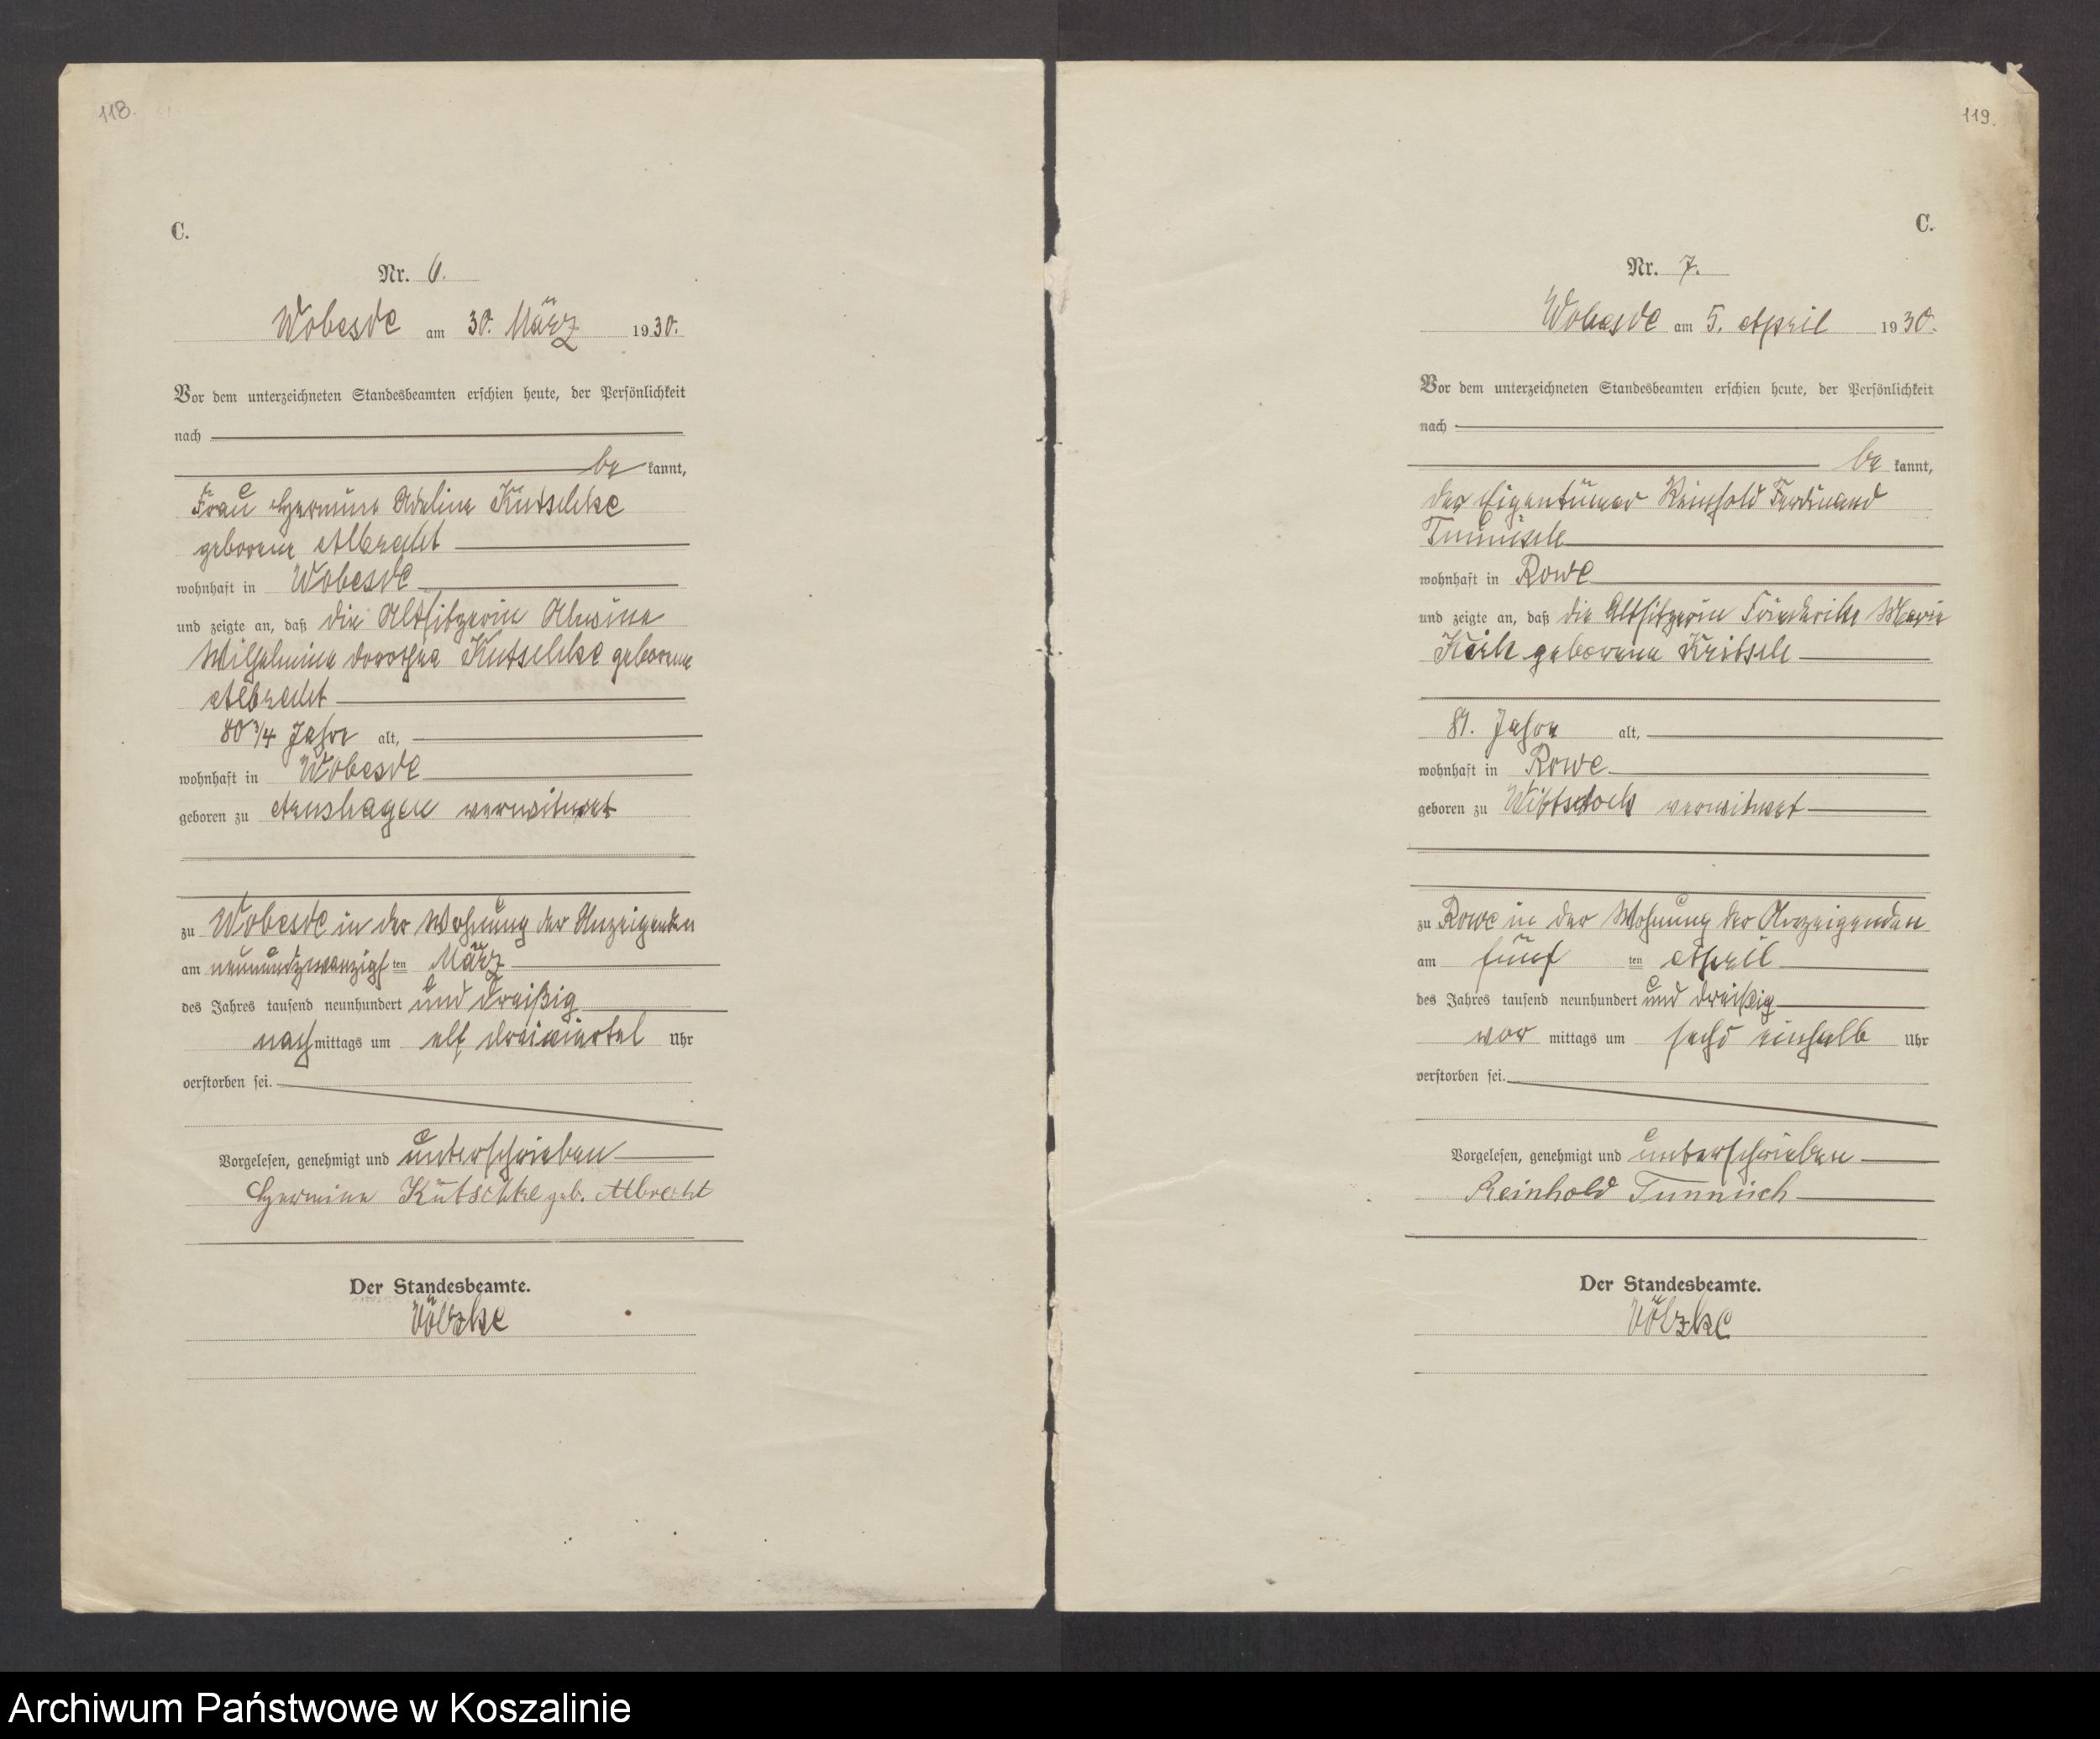 118.
C.
Nr. 6.
Wobesde am 30. März 1930.
Vor dem unterzeichneten Standesbeamten erschien heute, der Persönlichkeit
nach
be kannt,
Frau Hermine Adeline Kutschke
geborene Albrecht
wohnhaft in Wobesde
und zeigte an, daß die Altsitzerin Alwine
Wilhelmine Dorothea Kutschke geborene
Albrecht
80 3/4 Jahre alt,
wohnhaft in Wobesde
geboren zu Arnshagen verwitwet
zu Wobesde in der Wohnung der Anzeigenden
am neunundzwanzigsten März
des Jahres tausend neunhundert und dreißig
nachmittags um elf dreiviertel Uhr
verstorben sei.
Vorgelesen, genehmigt und unterschrieben
Hermine Kutschke geb. Albrecht
Der Standesbeamte.
Völzke
119.
C.
Nr. 7.
Wobesde am 5. April 1930.
Vor dem unterzeichneten Standesbeamten erschien heute, der Persönlichkeit
nach
be kannt,
der Eigentümer Reinhold Ferdinand
Tunnisch
wohnhaft in Rowe
und zeigte an, daß die Altsitzerin Friederike Marie
geborene Kritsch
81. Jahre alt,
wohnhaft in Rowe
geboren zu Wittstock verwitwet
zu Rowe in der Wohnung der Anzeigenden
am fünf ten April
des Jahres tausend neunhundert und dreißig
vor mittags um sechs einhalb Uhr
verstorben sei.
Vorgelesen, genehmigt und unterschrieben
Reinhold Tunnisch
Der Standesbeamte.
Völzke
Archiwum Państwowe w Koszalinie